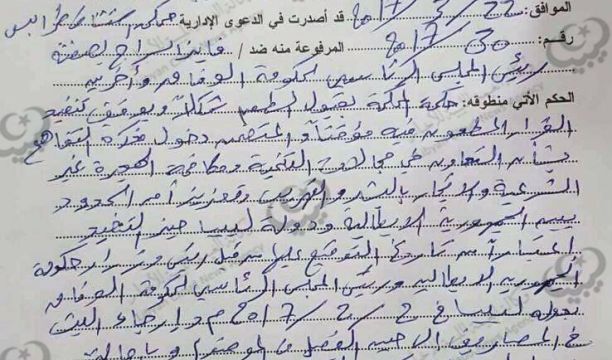 الموافق: 22/3/2017 قد أصدرت في الدعوى الإدارية محكمة استئناف طرابلس
رقم: 30/2017 المرفوعة منه ضد / فايز السراج لصفته
رئيس المجلس الرئاسي لحكومة الوفاق وآخرين
الحكم الآتي منطوقه: حكمت المحكمة بقبول الطعن شكلاً وبوقف تنفيذ
القرار المطعون فيه مؤقتاً والمتضمن دخول مذكرة التفاهم
بشأن التعاون في مجالات التنمية ومكافحة الهجرة غير
الشرعية والاتجار بالبشر والتهريب وتعزيز أمن الحدود
بين الجمهورية الإيطالية ودولة ليبيا حيز التنفيذ
اعتباراً من تاريخ التوقيع عليها من قبل رئيس وزراء حكومة
الجمهورية الإيطالية ورئيس المجلس الرئاسي لحكومة الوفاق
بدولة ليبيا في 2/2/2017م وإرجاء البت
في المصاريف إلى حين الفصل في الموضوع وبإحالة